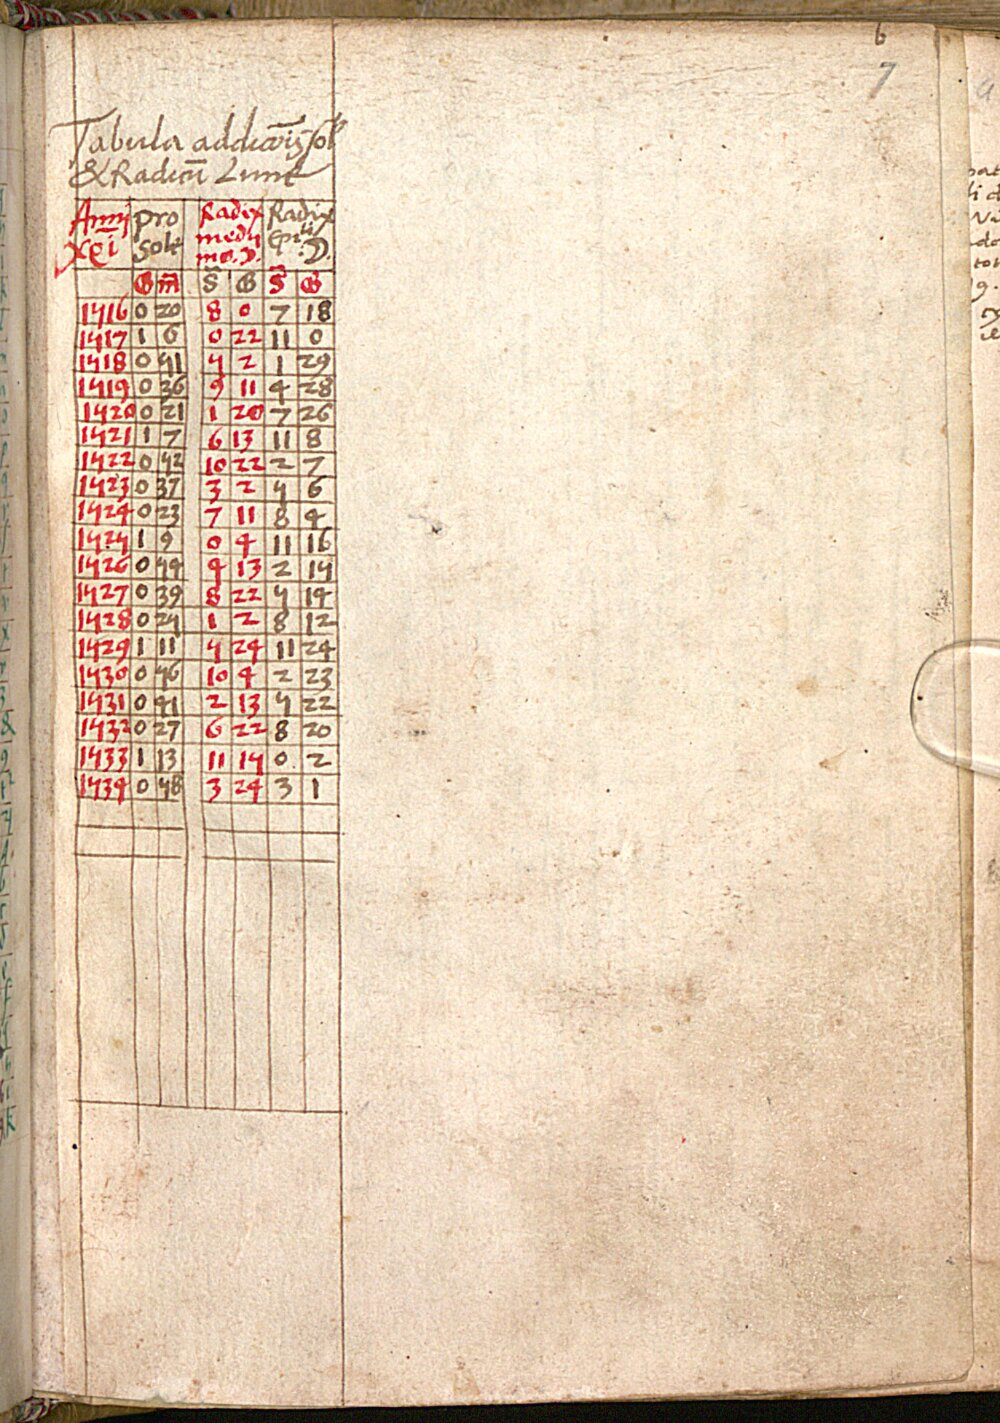 6
7
Tabula addicōis sol
& Radicū Lune
Anni Xp̄i pro Sole Radix medij mo. D. Radix Epicli D.
G m̄ S̄ G S̄ G
1516 0 20 8 0 7 18
1517 1 6 0 22 11 0
1518 0 51 5 2 1 29
1519 0 36 9 11 4 28
1520 0 21 1 20 7 26
1521 1 7 6 13 11 8
1522 0 52 10 22 2 7
1523 0 37 3 2 5 6
1524 0 23 7 11 8 4
1525 1 9 0 4 11 16
1526 0 54 4 13 2 15
1527 0 39 8 22 5 14
1528 0 25 1 2 8 12
1529 1 11 5 24 11 24
1530 0 56 10 4 2 23
1531 0 41 2 13 5 22
1532 0 27 6 22 8 20
1533 1 13 11 15 0 2
1534 0 58 3 24 3 1